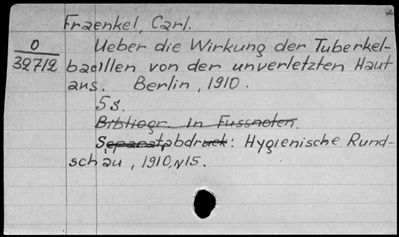 Fraenkel, Carl.
O
39712
Ueber die Wirkung der Tuberkel-
bacillen von der unverletzten Haut
aus. Berlin, 1910.
5 s.
Bibliogr. in Fussnoten.
Separatabdruck: Hygienische Rund-
schau, 1910, N 15.